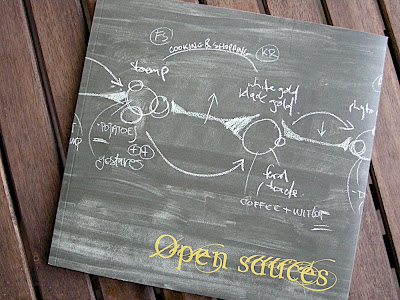 FS
COOKING & SHOPPING
KR
stoemp
white gold
black gold
POTATOES
gestures
food
COFFEE + WITLOF
Open sauces